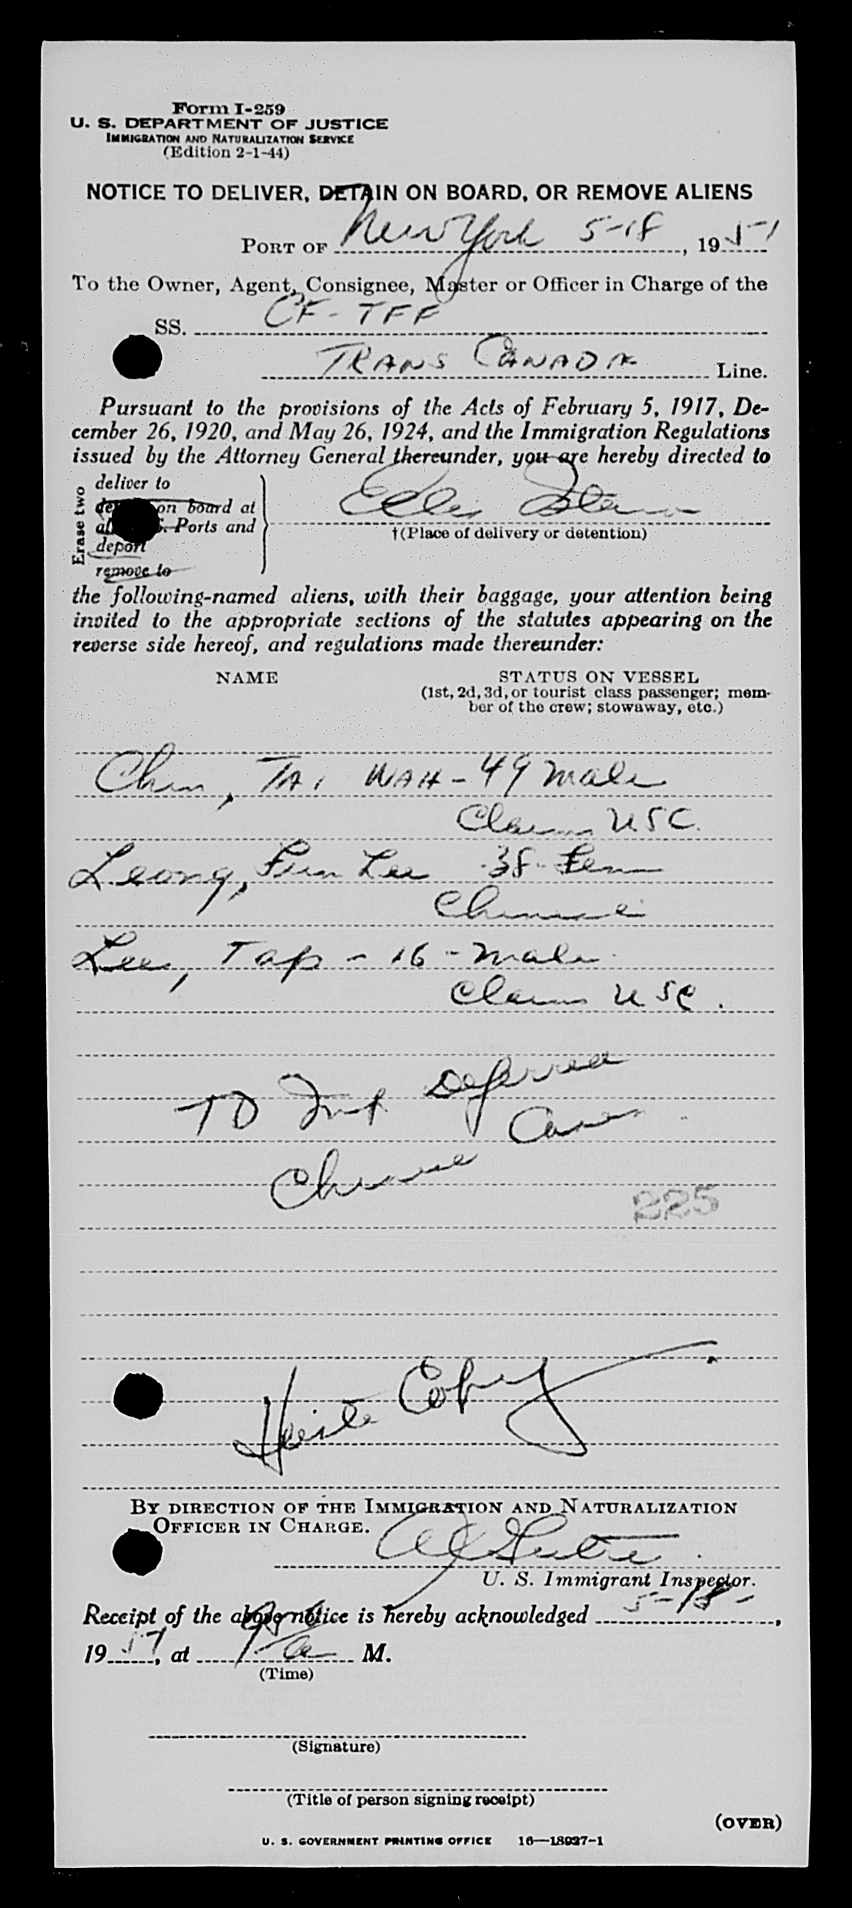 Form I-259
U. S. DEPARTMENT OF JUSTICE
IMMIGRATION AND NATURALIZATION SERVICE
(Edition 2-1-44)
NOTICE TO DELIVER, DETAIN ON BOARD, OR REMOVE ALIENS
PORT OF New York 5-18, 1951
To the Owner, Agent, Consignee, Master or Officer in Charge of the
SS. CF-TFF
TRANS CANADA Line.
Pursuant to the provisions of the Acts of February 5, 1917, De-
cember 26, 1920, and May 26, 1924, and the Immigration Regulations
issued by the Attorney General thereunder, you are hereby directed to
Erase two
deliver to
on board at
Ports and
deport
remove to
Ellis Island
†(Place of delivery or detention)
the following-named aliens, with their baggage, your attention being
invited to the appropriate sections of the statutes appearing on the
reverse side hereof, and regulations made thereunder:
NAME STATUS ON VESSEL
(1st, 2d, 3d, or tourist class passenger; mem-
ber of the crew; stowaway, etc.)
Chin, TAI WAH - 49 male
Claims USC.
Leong, Fun Lee 38 - Fem
Chinese
Lee, Tap - 16 - male
Claims USC.
TO Deferred
Chinese Cases
225
Copy
BY DIRECTION OF THE IMMIGRATION AND NATURALIZATION
OFFICER IN CHARGE.
U. S. Immigrant Inspector.
Receipt of the above notice is hereby acknowledged 5-18-,
1951, at a M.
(Time)
(Signature)
(Title of person signing receipt)
(OVER)
U. S. GOVERNMENT PRINTING OFFICE 16—18927-1